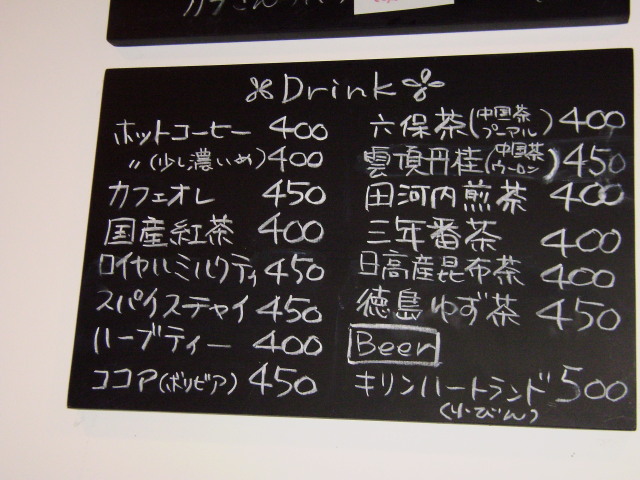 Drink
ホットコーヒー 400
〃(少し濃いめ) 400
カフェオレ 450
国産紅茶 400
ロイヤルミルクティ 450
スパイスチャイ 450
ハーブティー 400
ココア(ボリビア) 450
六保茶(中国茶プーアル) 400
雲頂丹桂(中国茶ウーロン) 450
田河内煎茶 400
三年番茶 400
日高産昆布茶 400
徳島ゆず茶 450
Beer
キリンハートランド 500
(小びん)